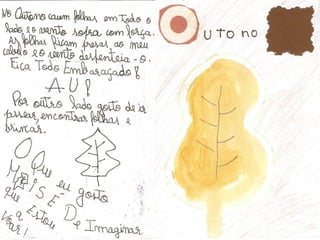 Outono
No Outono caem folhas em todo o
lado e o vento sopra com força.
As folhas ficam presas ao meu
cabelo e o vento despenteia-o.
Fica Todo Embaraçado!
AU!
Por outro lado gosto de ir
passear, encontrar folhas e
brincar.
O Que eu gosto
MAIS É De Imaginar
que Estou